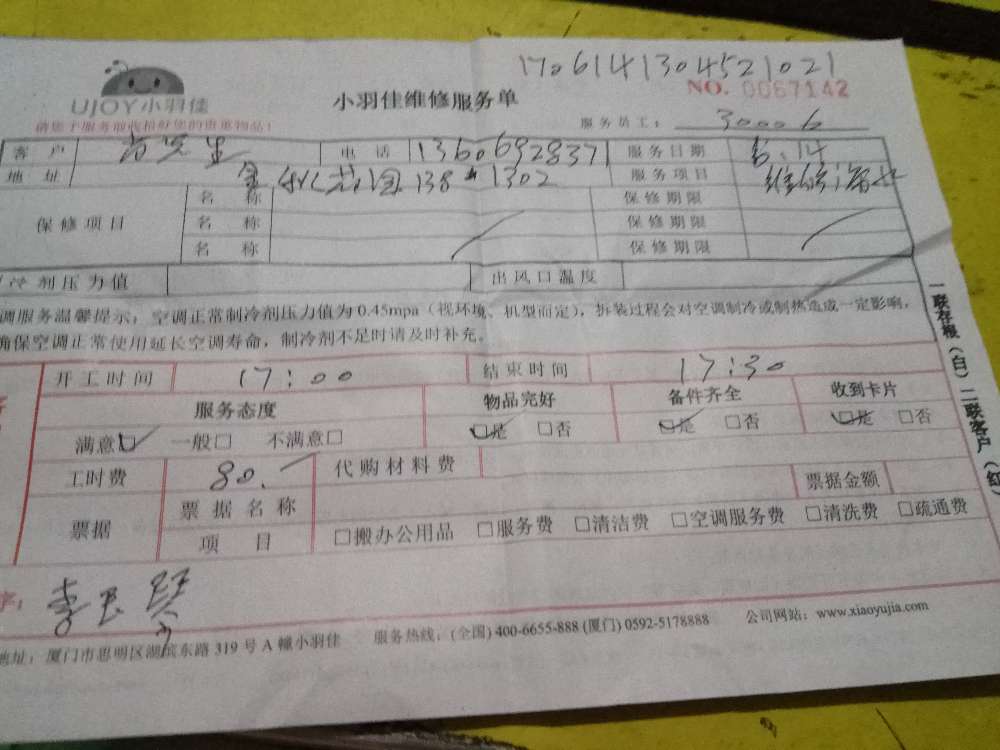 1706141304521021
UJOY小羽佳
小羽佳维修服务单
NO. 0067142
服务员工: 30006
客户 电话 13606928371 服务日期 6.14
地址 花园138#1302 服务项目 维修
保修项目
名称 保修期限
名称 保修期限
名称 保修期限
冷剂压力值 出风口温度
调服务温馨提示,空调正常制冷剂压力值为0.45mpa(视环境、机型而定),拆装过程会对空调制冷或制热造成一定影响,
确保空调正常使用延长空调寿命,制冷剂不足时请及时补充。
开工时间 17:00 结束时间 17:30
服务态度 物品完好 备件齐全 收到卡片
满意□ 一般□ 不满意□ □是 □否 □是 □否 □是 □否
工时费 80. 代购材料费
票据 票据名称 票据金额
项目 □搬办公用品 □服务费 □清洁费 □空调服务费 □清洗费 □疏通费
字: 李
地址:厦门市思明区湖滨东路319号A幢小羽佳 服务热线:(全国)400-6655-888(厦门)0592-5178888 公司网站:www.xiaoyujia.com
一联存根(白)二联客户(红